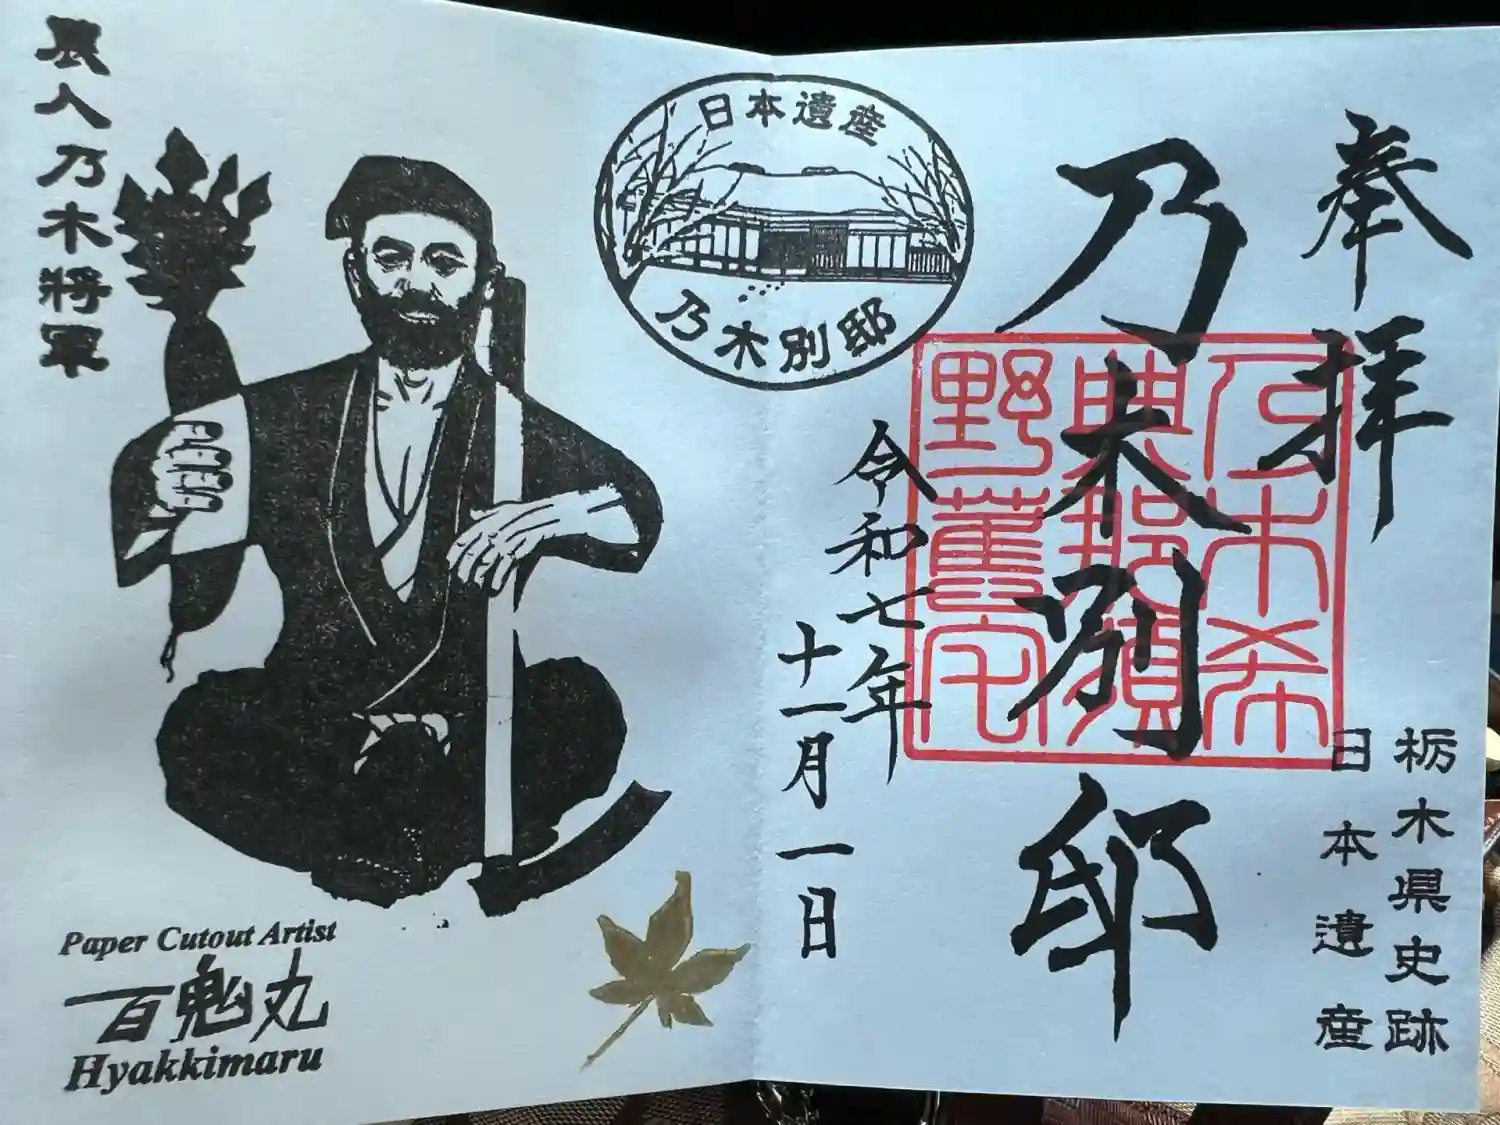 奉拝
栃木県史跡
日本遺産
乃木別邸
乃木希
典那須
野舊宅
令和七年
十一月一日
日本遺産
乃木別邸
農人乃木將軍
Paper Cutout Artist
百鬼丸
Hyakkimaru